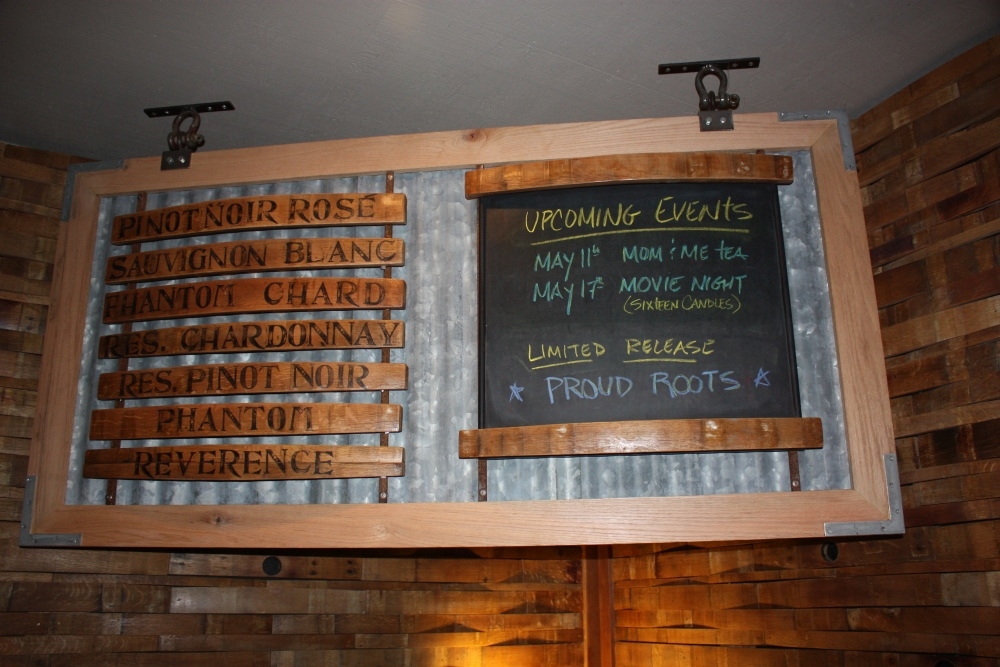 PINOT NOIR ROSE
SAUVIGNON BLANC
PHANTOM CHARD
RES. CHARDONNAY
RES. PINOT NOIR
PHANTOM
REVERENCE
UPCOMING EVENTS
MAY 11th MOM & ME TEA
MAY 17th MOVIE NIGHT
(SIXTEEN CANDLES)
LIMITED RELEASE
PROUD ROOTS